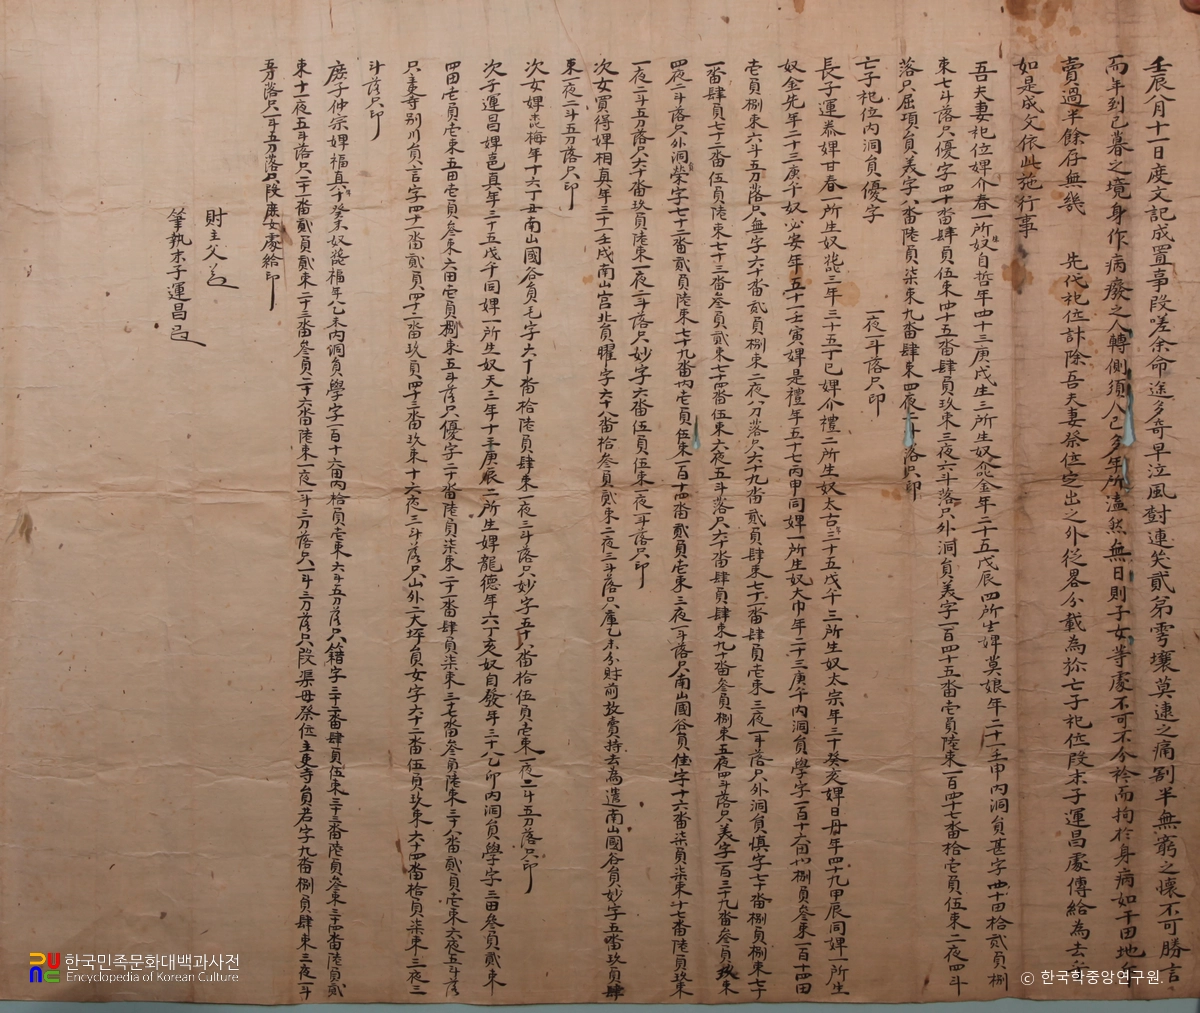 壬辰八月十一日度文記成置事段嗟余命途多奇早泣風樹連哭貳弟雩壤莫逮之痛割半無窮之懷不可勝言
而年到已暮之境身作病癈之人轉側須人已多年所溘然無日則子女等處不可不分衿而拘於身病如干田地
賣過半餘存無幾 先代祀位計除吾夫妻祭位定出之外從畧分載為㫆亡子祀位段末子運昌處傳給為去乎
如是成文依此施行事
吾夫妻祀位婢介春一所奴自哲年四十三庚戌生三所生奴金年二十五戊辰四所生婢莫娘年二十一壬申內洞員甚字四十田拾貳員捌
束七斗落只優字四十畓肆員伍束四十五畓肆員玖束三夜六斗落只外洞員美字一百四十五畓壱員陸束一百四十七畓拾壱員伍束二夜四斗
落只屈項員美字八畓陸員柒束九畓肆束四夜二斗落只印
亡子祀位內洞員優字 一夜一斗落只印
長子運泰婢甘春一所生奴三年三十五丁巳婢介禮二所生奴太古三十五戊午三所生奴太宗年三十癸亥婢日丹年四十九甲辰同婢一所生
奴金先年二十三庚午奴必安年五十一壬寅婢是禮年五十七丙申同婢一所生奴大巾年二十三庚午內洞員學字一百十六田捌員參束一百十四田
壱員捌束六斗五刀落只無字六十畓貳員捌束二夜八刀落只六十九畓貳員肆束七十一畓肆員壱束三夜一斗落只外洞員慎字七十畓捌員捌束七十
一畓肆員七十二畓伍員陸束七十三畓參員貳束七十四畓伍束六夜五斗落只六十畓肆員肆束九十畓參員捌束五夜四斗落只美字一百三十九畓參員玖束
四夜二斗落只外洞榮字七十二畓貳員陸束七十九畓內壱員伍束一百十四畓貳員壱束三夜一斗落只南山國谷員佳字十六畓柒員柒束十七畓陸員玖束
一夜二斗五刀落只六十畓玖員陸束一夜二斗落只妙字六畓伍員伍束一夜一斗落只印
次女買得婢相真年三十一壬戌南山宮北員曜字六十八畓拾參員貳束二夜三斗落只庫乙未分財前放賣持去為遣南山國谷員妙字五畓玖員肆
束一夜二斗五刀落只印
次女婢梅年十六丁丑南山國谷員毛字六十畓拾陸員肆束一夜三斗落只妙字五十八畓拾伍員壱束一夜二斗五刀落只印
次子運昌婢邑真年三十五戊午同婢一所生奴天三年十三庚辰二所生婢龍德年六丁亥奴自發年三十八乙卯內洞員學字三田參員貳束
四田壱員壱束五田壱員參束六田壱員捌束五斗落只優字二十畓陸員柒束二十一畓肆員柒束三十七畓參員陸束三十八畓貳員壱束六夜五斗落
只束寺別川員言字四十一畓貳員四十二畓玖員四十三畓玖束十六夜三斗落只山外二大坪員女字六十二畓伍員玖束六十四畓拾員柒束三夜三
斗落只印
庶子仲宗婢福真年癸未奴福年乙未內洞員學字一百十六田內拾員壱束六斗五刀落只籍字三十二畓肆員伍束三十三畓陸員參束三十四畓陸員貳
束十一夜五斗落只二十一畓貳員貳束二十三畓參員二十六畓陸束一夜一斗三刀落只一斗三刀落只段渠母祭位主東寺員若字九畓捌員肆束三夜一斗
五刀落只一斗五刀落只段庶女處給印
財主父
筆執末子運昌
한국민족문화대백과사전
Encyclopedia of Korean Culture
ⓒ 한국학중앙연구원.